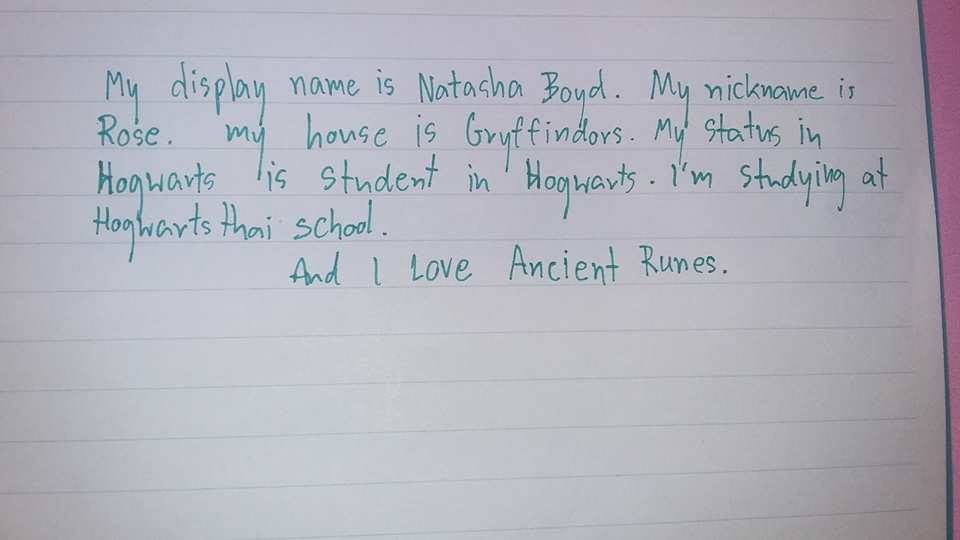 My display name is Natasha Boyd. My nickname is
Rose. my house is Gryffindors. My status in
Hogwarts is student in Hogwarts. I'm studying at
Hogwarts thai school.
And I Love Ancient Runes.